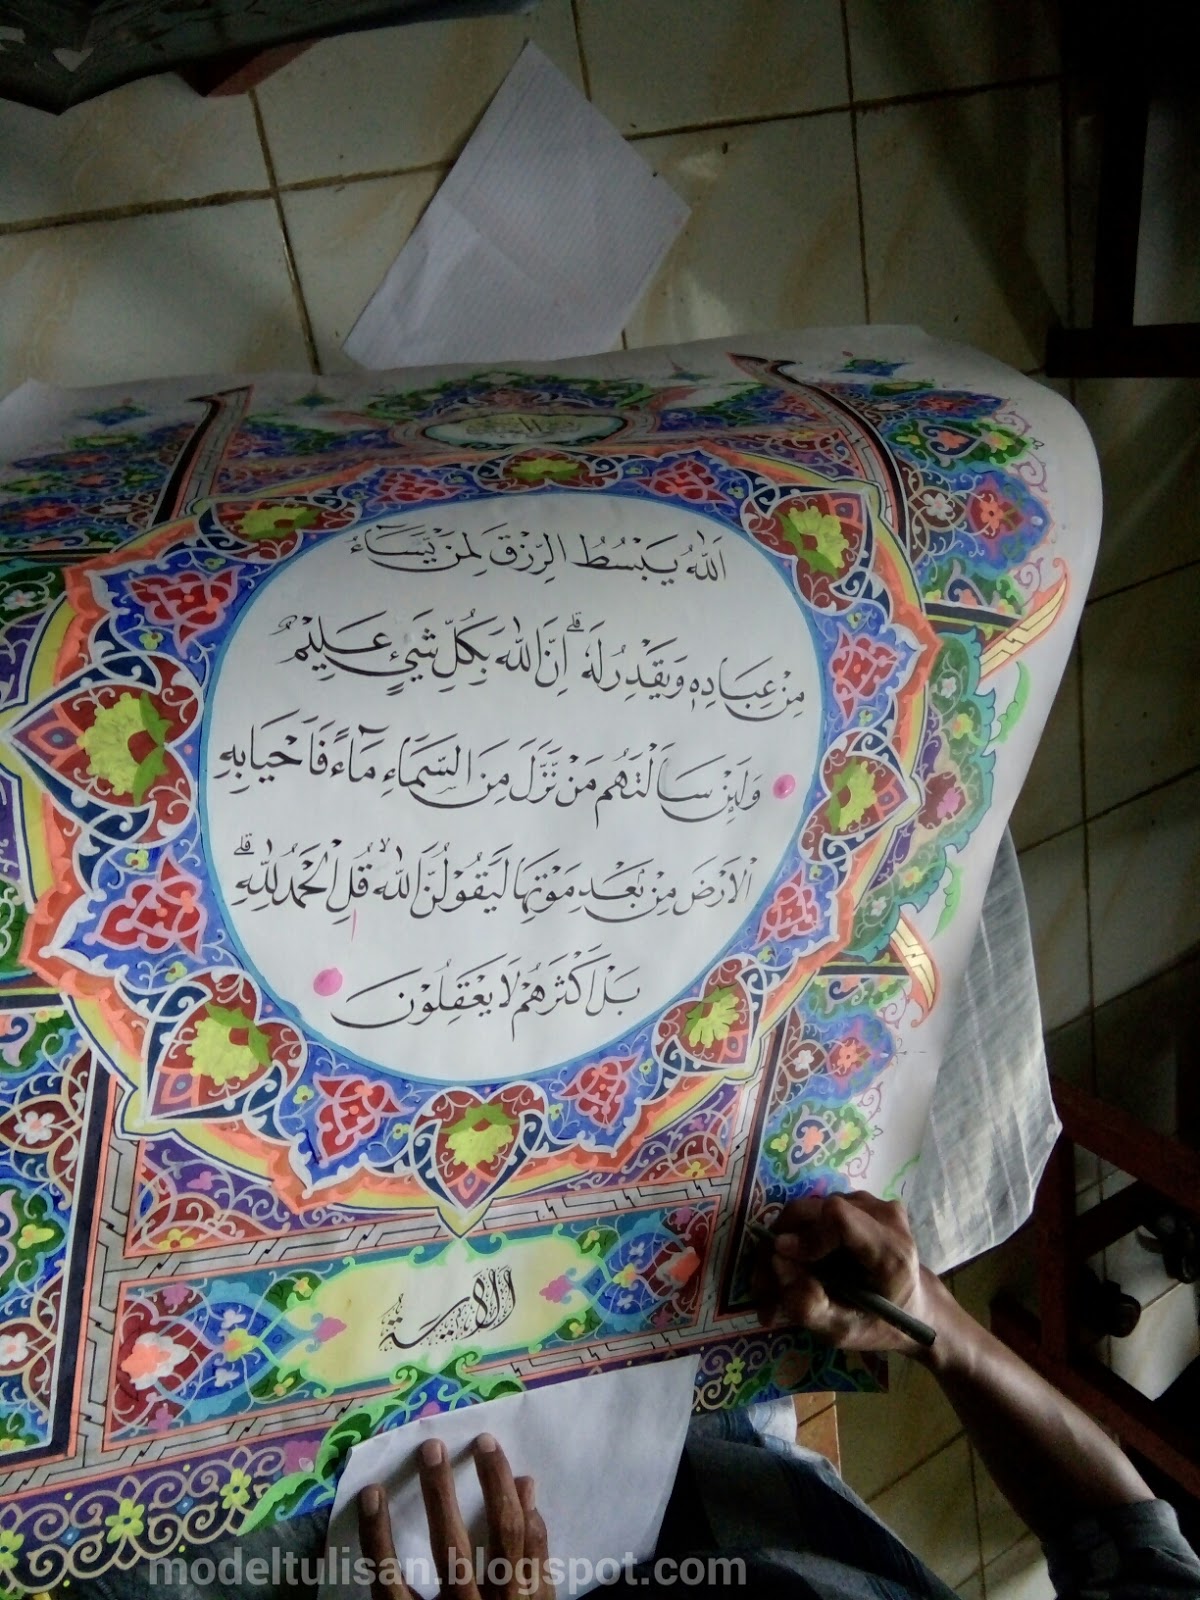 اَللّٰهُ يَبْسُطُ الرِّزْقَ لِمَنْ يَّشَاۤءُ
مِنْ عِبَادِهٖ وَيَقْدِرُ لَهٗ ۗاِنَّ اللّٰهَ بِكُلِّ شَيْءٍ عَلِيْمٌ
وَلَىِٕنْ سَاَلْتَهُمْ مَنْ نَّزَّلَ مِنَ السَّمَاۤءِ مَاۤءً فَاَحْيَا بِهِ
الْاَرْضَ مِنْۢ بَعْدِ مَوْتِهَا لَيَقُوْلُنَّ اللّٰهُ ۙقُلِ الْحَمْدُ لِلّٰهِ ۗ
بَلْ اَكْثَرُهُمْ لَا يَعْقِلُوْنَ
الاية
modeltulisan.blogspot.com